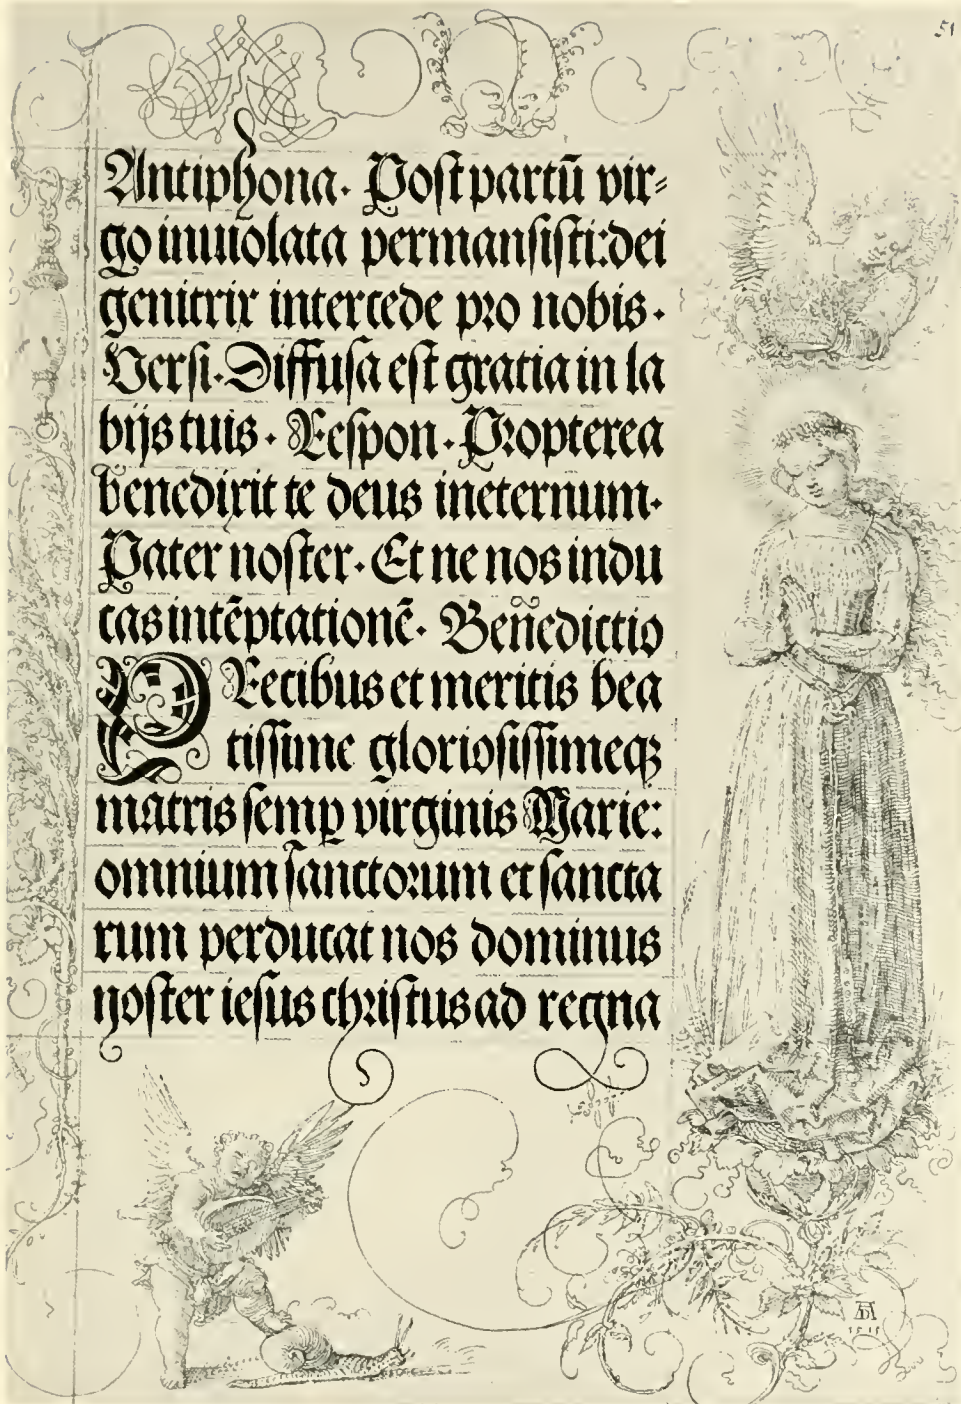 51
Antiphona. Poſt partū vir⸗
go inuiolata permanſiſti: dei
genitrix intercede pro nobis.
Verſi. Diffuſa eſt gratia in la
bijs tuis. Reſpon. Propterea
benedixit te deus ineternum.
Pater noſter. Et ne nos indu
cas intēptationē. Benedictio
PRecibus et meritis bea
tiſſime glorioſiſſimeqꝫ
matris ſemꝑ virginis Marie:
omnium ſanctorum et ſancta
rum perducat nos dominus
noſter ieſus chriſtus ad regna
AD